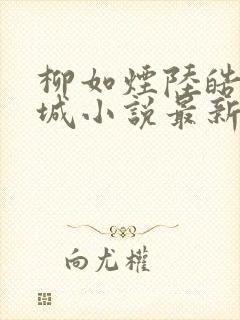 柳如煙陸皓
城小説最新
向尤權